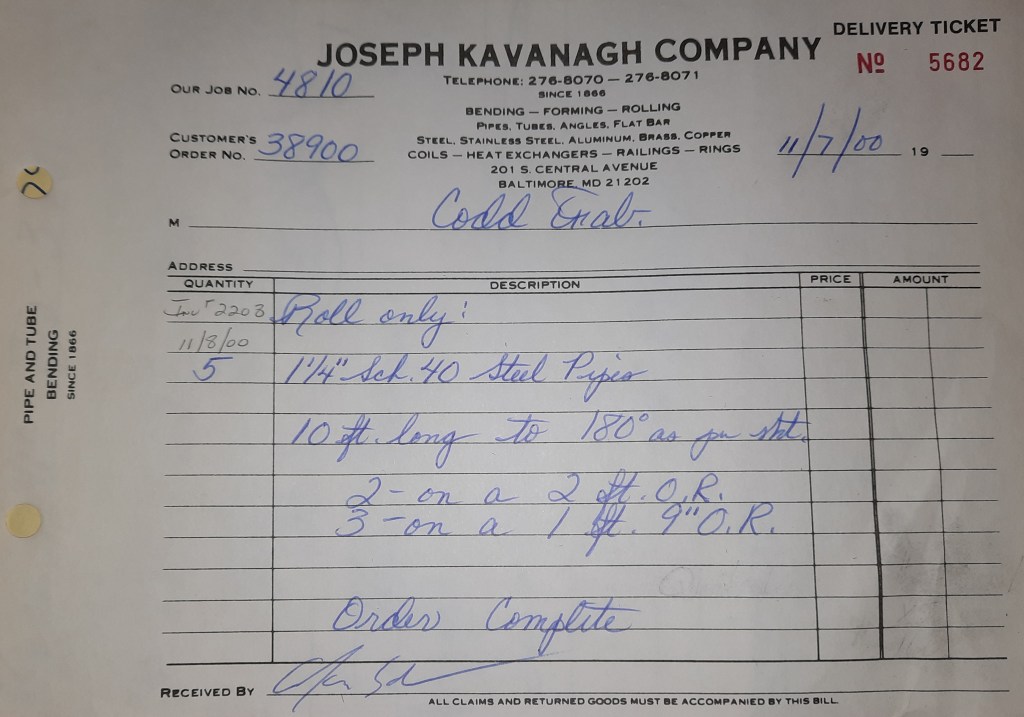 DELIVERY TICKET
JOSEPH KAVANAGH COMPANY
Nº 5682
TELEPHONE: 276-8070 — 276-8071
SINCE 1866
OUR JOB NO. 4810
BENDING — FORMING — ROLLING
PIPES, TUBES, ANGLES, FLAT BAR
CUSTOMER'S
ORDER NO. 38900
STEEL, STAINLESS STEEL, ALUMINUM, BRASS, COPPER
COILS — HEAT EXCHANGERS — RAILINGS — RINGS
11/7/00 19
201 S. CENTRAL AVENUE
BALTIMORE, MD 21202
M Codd Fab.
ADDRESS
QUANTITY DESCRIPTION PRICE AMOUNT
Inv # 2203 Roll only:
11/8/00
5 1 1/4" Sch. 40 Steel Pipes
10 ft. long to 180° as per skt.
2 - on a 2 ft. O.R.
3 - on a 1 ft. 9" O.R.
Order Complete
RECEIVED BY
ALL CLAIMS AND RETURNED GOODS MUST BE ACCOMPANIED BY THIS BILL
PIPE AND TUBE
BENDING
SINCE 1866